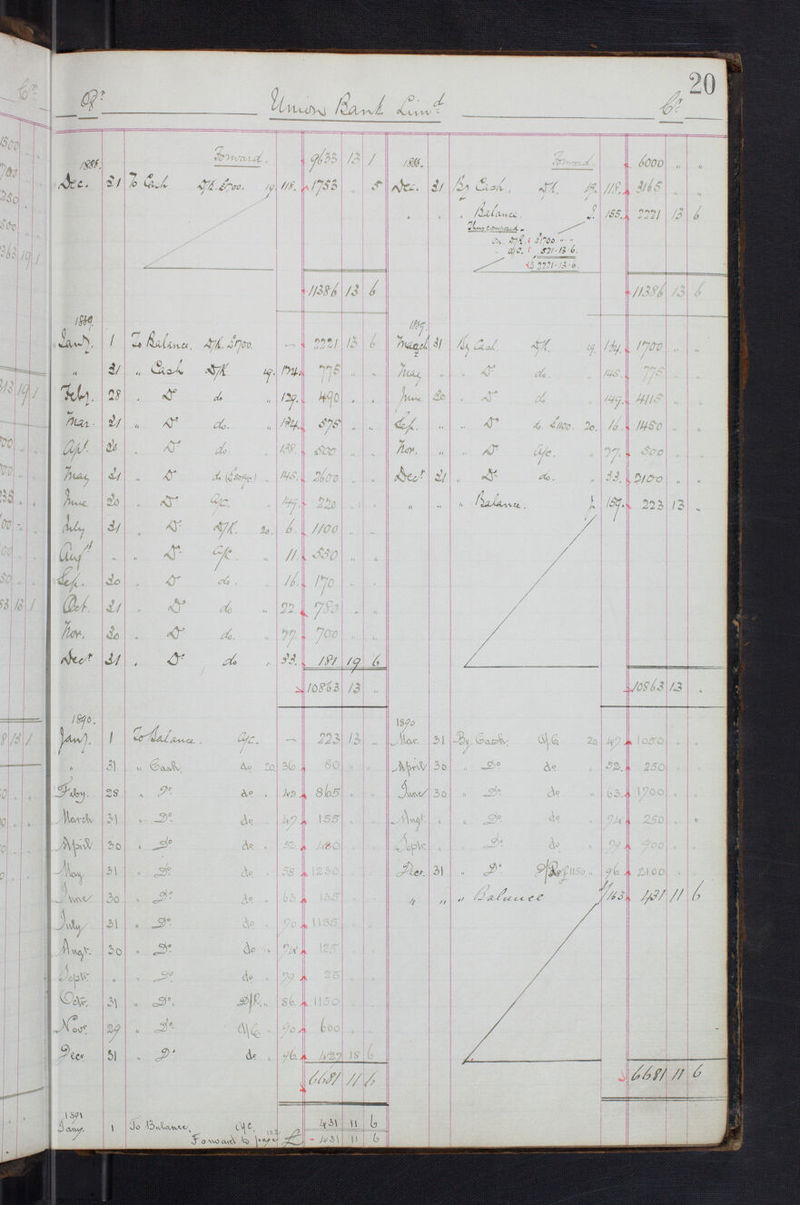 20
Dr. Union Bank Limd. Cr.
1888. Forward. 9633 13 1 1888. Forward. 6000 " "
Dec. 31 To Cash 19. 118. 1753 . 5 Dec. 31 By Cash. 19. 118. 3165 . .
" Balance. 155. 2221 13 6
£1700 " "
521.13.6.
£2221.13.6.
11386 13 6 11386 13 6
1889. 1889.
Jany. 1 To Balance. D/R £1700. — 2221 13 6 March 31 By Cash D/R 19. 134. 1700 . .
" 31 " Cash D/R 19. 775 . . May . . Do do. 148. 775 . .
Feby. 28 . Do do " 129. 490 . . June 30 . Do do 149. 4115 . .
Mar. 31 " Do do. " 134. 575 . . Sep. " . Do 20. 16. 1450 . .
Apl. 30 . Do do . 138. 500 . . Nov. " . Do a/c. . 27. 500 . .
May 31 . Do do . 148. 2600 . . Decr 31 . Do do. . 33. 2100 . .
June 30 . Do a/c. . 149. 220 . . " " " Balance. 159. 223 13 .
July 31 . Do D/R. 20. 6. 1100 . .
Augt . . Do a/c . 11. 550 . .
Sep. 30 . Do do. . 16. 170 . .
Oct. 31 . Do do " 22 750 . .
Nov. 30 . Do do. . 27. 700 . .
Decr 31 . Do do . 33. 181 19 6
10863 13 .. 10863 13 .
1890. 1890
Jany. 1 To Balance. a/c. — 223 13 . Mar. 31 By Cash. a/c 20 47 1050 . .
" 31 " Cash. do 20 36 80 . . April 30 " Do do . 52. 250 . .
Feby. 28 " Do do . 42 865 . . June 30 . Do do . 63. 1700 . .
March 31 . Do do . 47 155 . . Augt. . . Do do . 74 250 . .
April 30 . Do do . 52. 480 . . Septr. . . Do do . 79 900 . .
May 31 . Do do . 58 1230 . . Dec. 31 . Do £1150 .. 96 2100 . .
June 30 . Do do . 63 135 . . " " " Balance 163 431 11 6
July 31 . Do do . 70 1135 . .
Augt. 30 . Do do . 74 125 . .
Septr. . . Do do . 79 25 . .
Octr. 31 . Do D/R. . 86 1150 . .
Novr 29 . Do a/c . 90 600 . .
Decr 31 . Do do . 96 427 18 6
6681 11 6 6681 11 6
1891
Jany. 1 To Balance. a/c. 431 11 6
Forward to page £ - 431 11 6